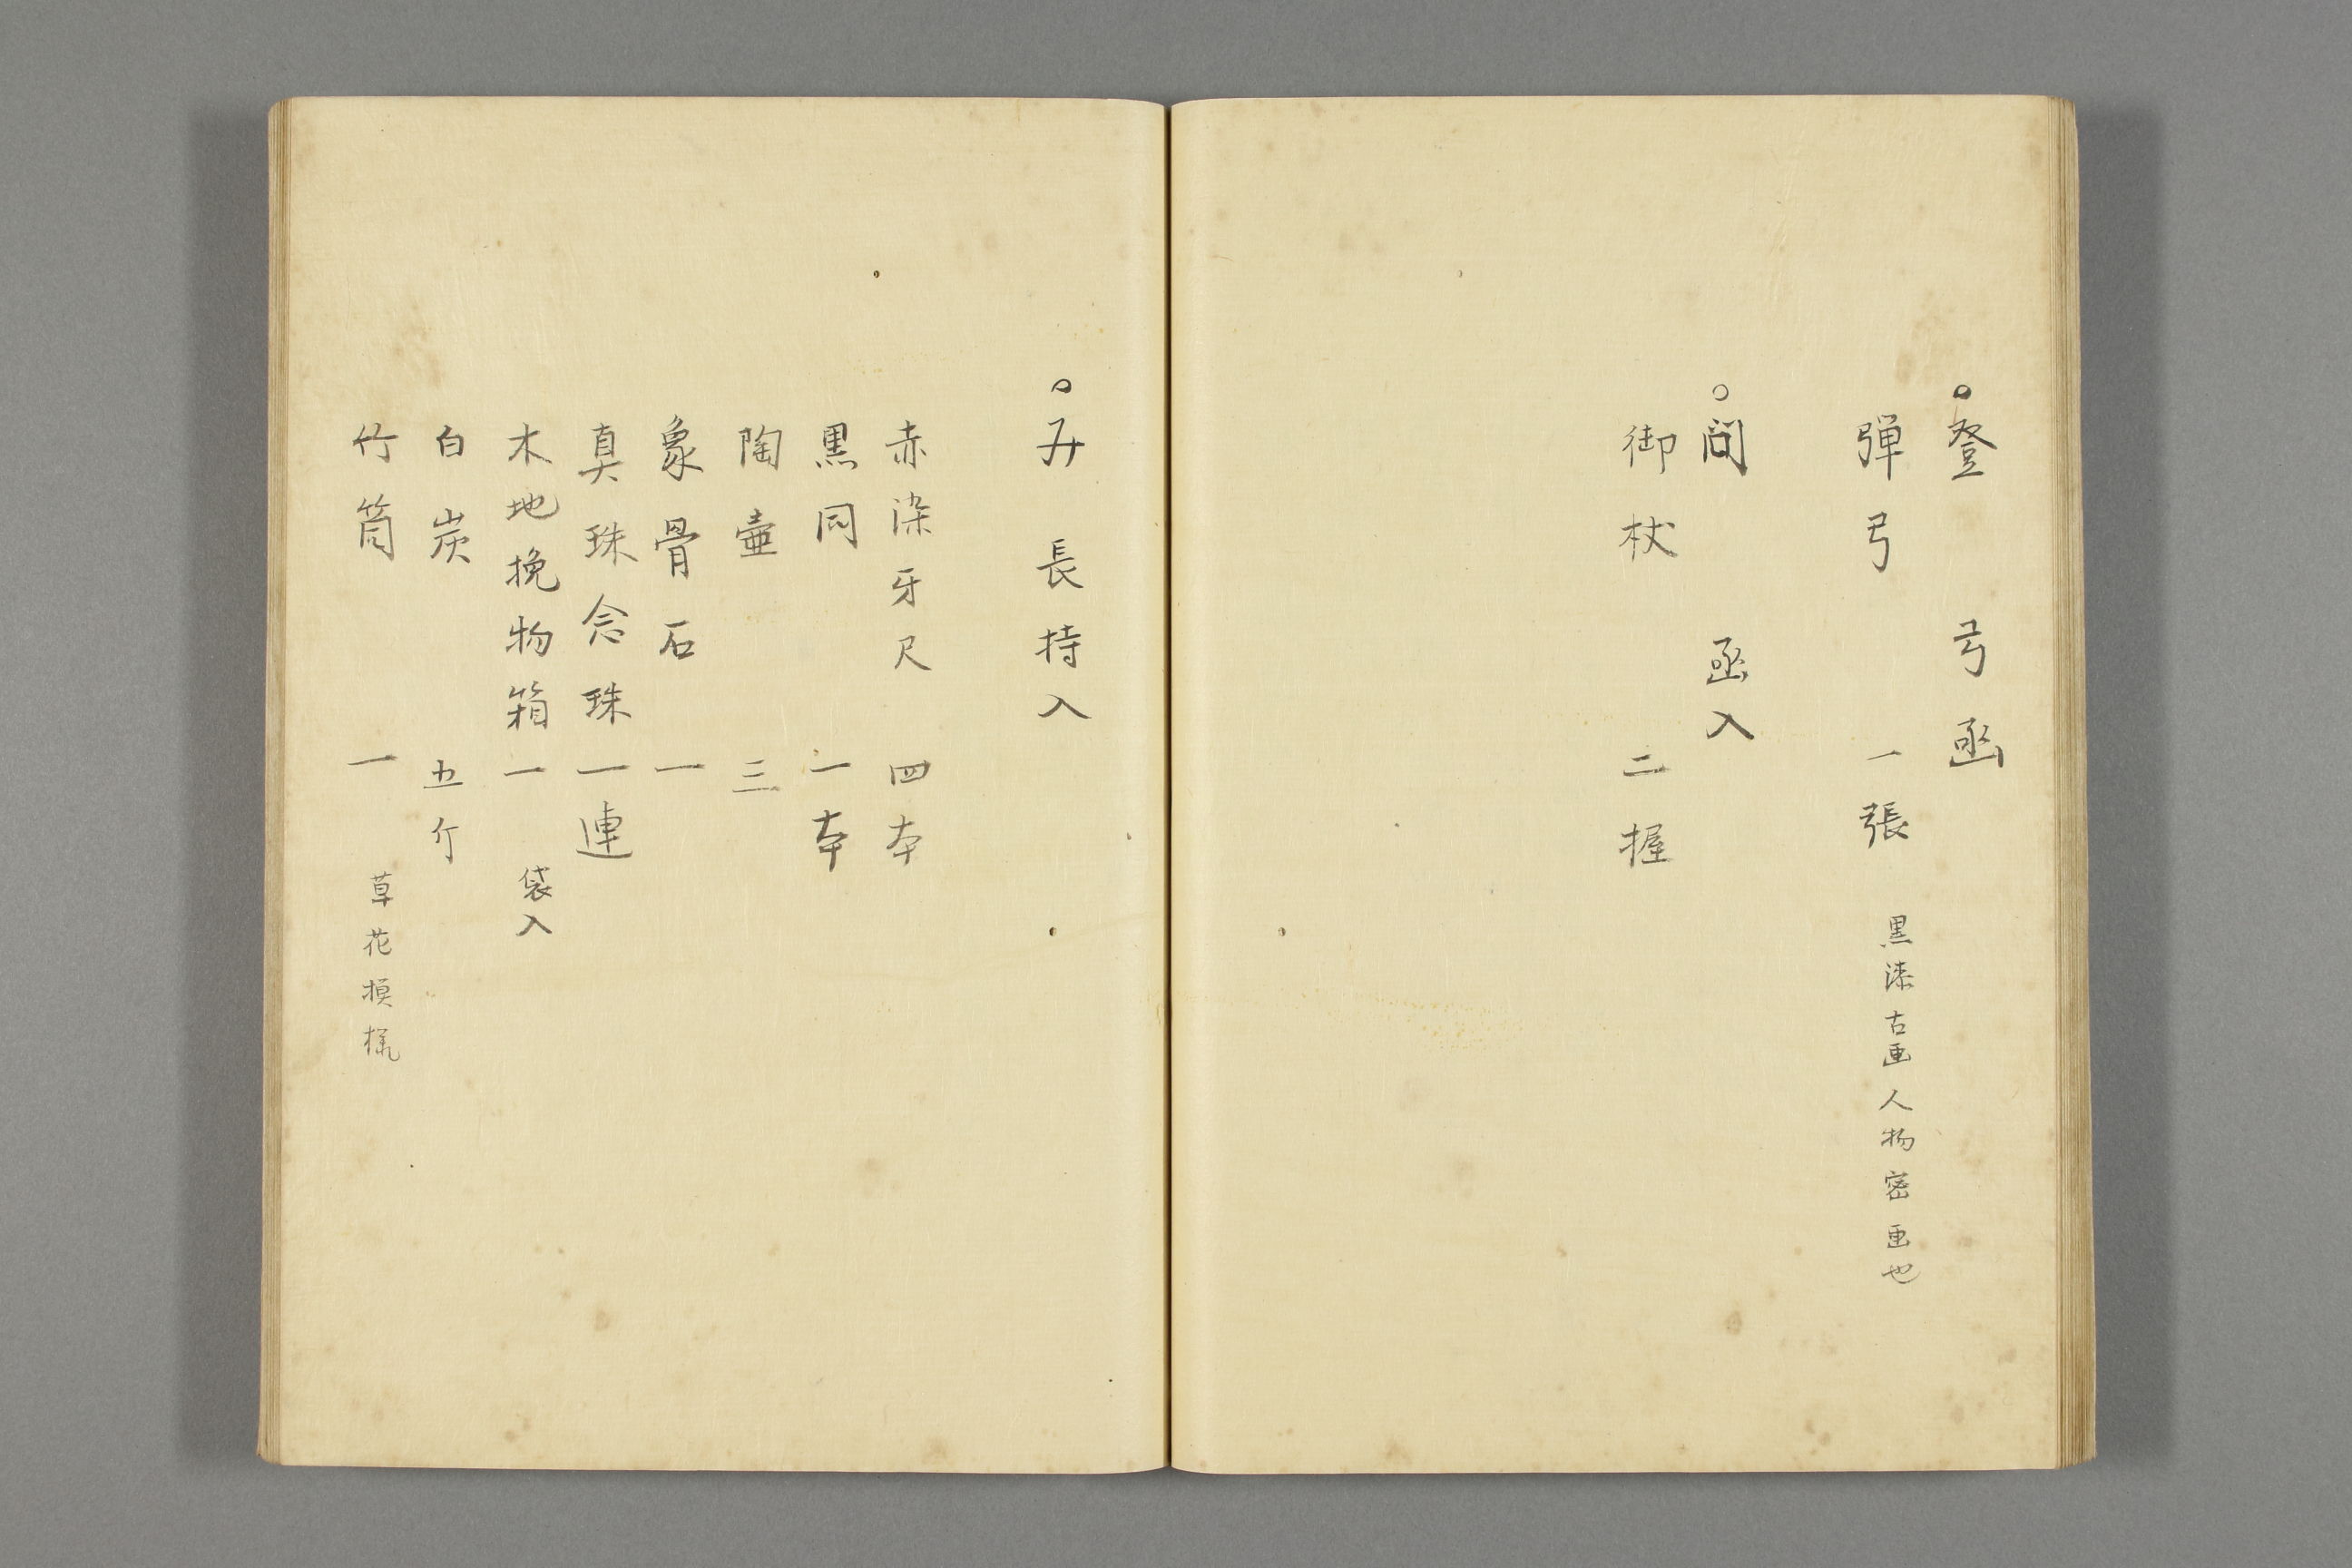 ○登 弓凾
弾弓 一張 黒漆古画人物密画也
○問 凾入
御杖 二握
○み 長持入
赤染牙尺 四本
黒同 一本
陶壷 三
象骨石 一
真珠念珠 一連
木地挽物箱 一 袋入
白炭 五斤
竹筒 一 草花損様